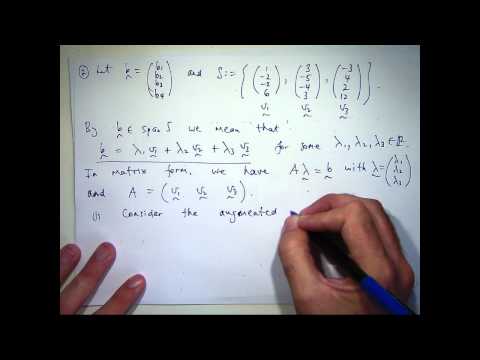 ② Let b = (b1 b2 b3 b4) and S := { (1 -2 -8 6), (3 -5 -4 3), (-3 4 2 12) }.
v1 v2 v3
By b ∈ span S we mean that
b = λ1 v1 + λ2 v2 + λ3 v3 for some λ1, λ2, λ3 ∈ ℝ.
In matrix form, we have Aλ = b with λ = (λ1 λ2 λ3)
and A = (v1 v2 v3).
(i) Consider the augmented